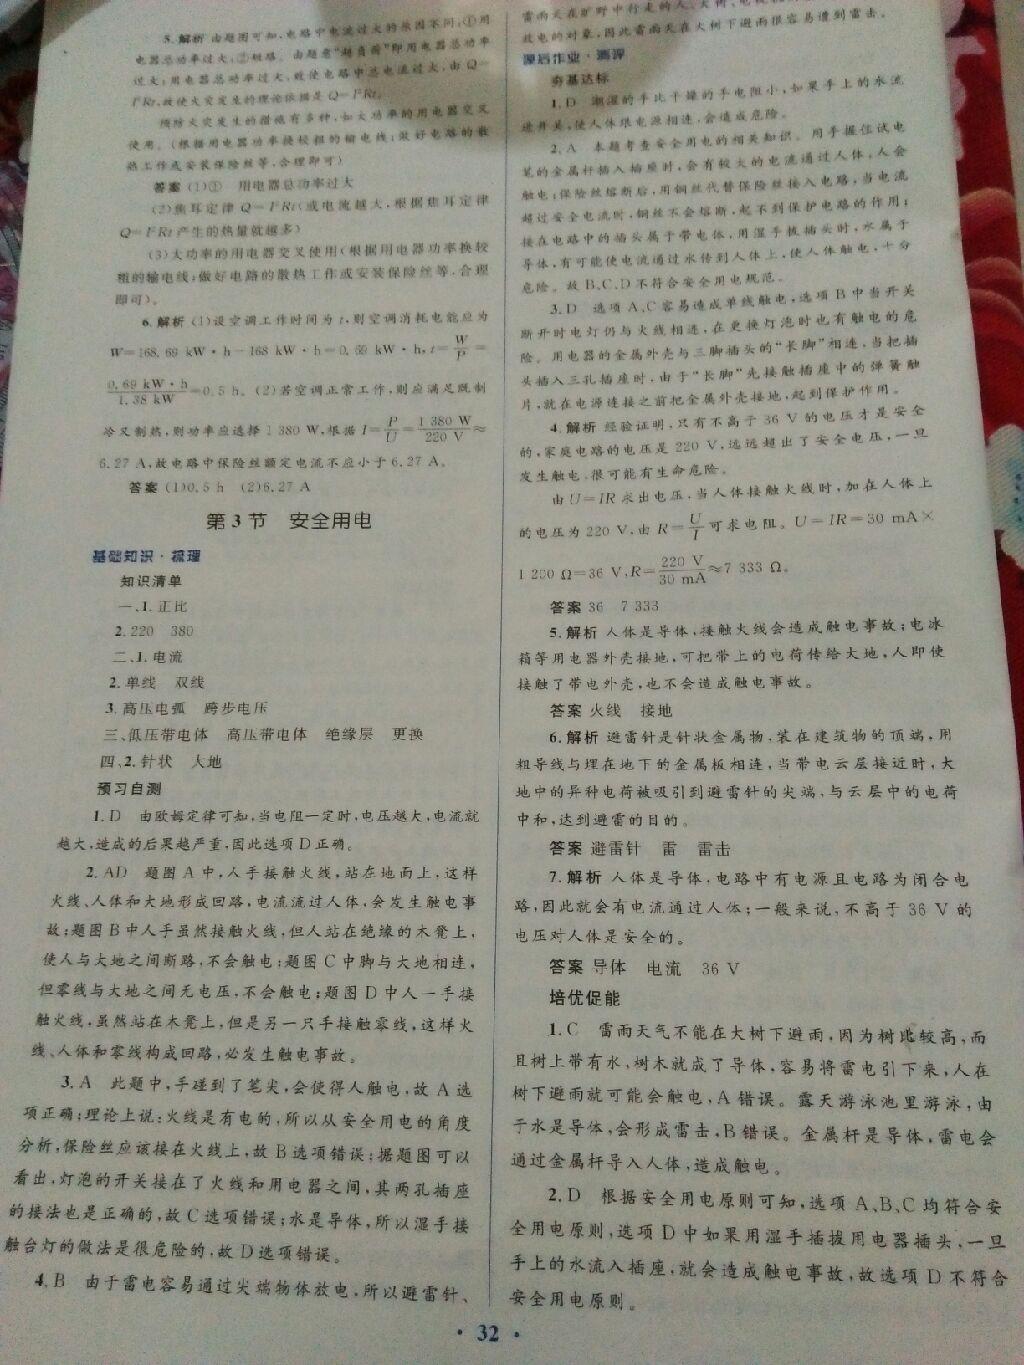 5.解析 由题图可知,电路中电流过大的原因不同:①用
电器总功率过大,②短路。由题意“超负荷”即用电器总功率
过大;用电器总功率过大,致使电路中总电流过大,由 Q=
I²Rt,故使火灾发生的理论依据是 Q=I²Rt。
预防火灾发生的措施有多种,如大功率的用电器交叉
使用。(根据用电器功率换较粗的输电线;做好电路的散
热工作或安装保险丝等,合理即可)
答案 (1)① 用电器总功率过大
(2)焦耳定律 Q=I²Rt(或电流越大,根据焦耳定律
Q=I²Rt 产生的热量就越多)
(3)大功率的用电器交叉使用(根据用电器功率换较
粗的输电线;做好电路的散热工作或安装保险丝等,合理
即可)。
6.解析 (1)设空调工作时间为 t,则空调消耗电能应为
W=168.69 kW·h-168 kW·h=0.69 kW·h,t=W/P=
0.69 kW·h/1.38 kW=0.5 h。(2)若空调正常工作,则应满足既制
冷又制热,则功率应选择 1 380 W,根据 I=P/U=1 380 W/220 V≈
6.27 A,故电路中保险丝额定电流不应小于 6.27 A。
答案 (1)0.5 h (2)6.27 A
第3节 安全用电
基础知识·梳理
知识清单
一、1.正比
2.220 380
二、1.电流
2.单线 双线
3.高压电弧 跨步电压
三、低压带电体 高压带电体 绝缘层 更换
四、2.针状 大地
预习自测
1.D 由欧姆定律可知,当电阻一定时,电压越大,电流就
越大,造成的后果越严重,因此选项D正确。
2.AD 题图 A 中,人手接触火线,站在地面上,这样
火线、人体和大地形成回路,电流流过人体,会发生触电事
故;题图 B 中人手虽然接触火线,但人站在绝缘的木凳上,
使人与大地之间断路,不会触电;题图 C 中脚与大地相连,
但零线与大地之间无电压,不会触电;题图 D 中人一手接
触火线,虽然站在木凳上,但是另一只手接触零线,这样火
线、人体和零线构成回路,必发生触电事故。
3.A 此题中,手碰到了笔尖,会使得人触电,故 A 选
项正确;理论上说:火线是有电的,所以从安全用电的角度
分析,保险丝应该接在火线上,故 B 选项错误;据题图可以
看出,灯泡的开关接在了火线和用电器之间,其两孔插座
的接法也是正确的,故 C 选项错误;水是导体,所以湿手接
触台灯的做法是很危险的,故 D 选项错误。
4.B 由于雷电容易通过尖端物体放电,所以避雷针、
雷雨天在旷野中行走的人、大树、电视
放电的对象,因此雷雨天在大树下避雨很容易遭到雷击。
课后作业·测评
夯基达标
1.D 潮湿的手比干燥的手电阻小,如果手上的水流
进开关,使人体跟电源相连,会造成危险。
2.A 本题考查安全用电的相关知识。用手握住试电
笔的金属杆插入插座时,会有较大的电流通过人体,人会
触电;保险丝熔断后,用铜丝代替保险丝接入电路,当电流
超过安全电流时,铜丝不会熔断,起不到保护电路的作用;
接在电路中的插头属于带电体,用湿手拔插头时,水属于
导体,有可能使电流通过水传到人体上,使人体触电,十分
危险。故 B、C、D 不符合安全用电规范。
3.D 选项 A、C 容易造成单线触电,选项 B 中当开关
断开时电灯仍与火线相连,在更换灯泡时也有触电的危
险。用电器的金属外壳与三脚插头的“长脚”相连,当把插
头插入三孔插座时,由于“长脚”先接触插座中的弹簧触
片,就在电源连接之前把金属外壳接地,起到保护作用。
4.解析 经验证明,只有不高于 36 V 的电压才是安全
的,家庭电路的电压是 220 V,远远超出了安全电压,一旦
发生触电,很可能有生命危险。
由 U=IR 求出电压,当人体接触火线时,加在人体上
的电压为 220 V,由 R=U/I 可求电阻。U=IR=30 mA×
1 200 Ω=36 V,R=220 V/30 mA≈7 333 Ω。
答案 36 7 333
5.解析 人体是导体,接触火线会造成触电事故;电冰
箱等用电器外壳接地,可把带上的电荷传给大地,人即使
接触了带电外壳,也不会造成触电事故。
答案 火线 接地
6.解析 避雷针是针状金属物,装在建筑物的顶端,用
粗导线与埋在地下的金属板相连,当带电云层接近时,大
地中的异种电荷被吸引到避雷针的尖端,与云层中的电荷
中和,达到避雷的目的。
答案 避雷针 雷 雷击
7.解析 人体是导体,电路中有电源且电路为闭合电
路,因此就会有电流通过人体;一般来说,不高于 36 V 的
电压对人体是安全的。
答案 导体 电流 36 V
培优促能
1.C 雷雨天气不能在大树下避雨,因为树比较高,而
且树上带有水,树木就成了导体,容易将雷电引下来,人在
树下避雨就可能会触电,A 错误。露天游泳池里游泳,由
于水是导体,会形成雷击,B 错误。金属杆是导体,雷电会
通过金属杆导入人体,造成触电。
2.D 根据安全用电原则可知,选项 A、B、C 均符合安
全用电原则,选项 D 中如果用湿手插拔用电器插头,一旦
手上的水流入插座,就会造成触电事故,故选项 D 不符合
安全用电原则。
· 32 ·